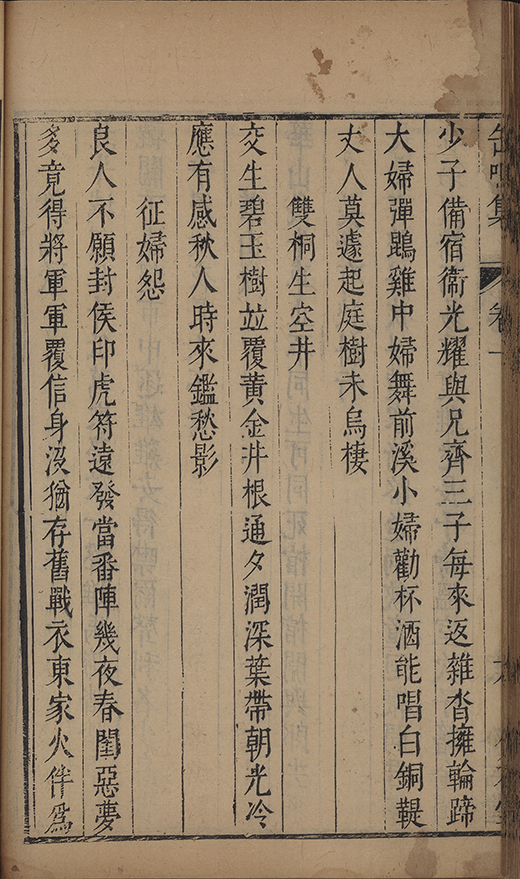 缶鳴集 卷一
少子備宿衞光耀與兄齊三子每來返雜沓擁輪蹄
大婦彈鵾雞中婦舞前溪小婦勸杯酒能唱白銅鞮
丈人莫遽起庭樹未烏棲
雙桐生空井
交生碧玉樹竝覆黃金井根通夕潤深葉帶朝光冷
應有感秋人時來鑑愁影
征婦怨
良人不願封侯印虎符遠發當番陣幾夜春閨惡夢
多竟得將軍軍覆信身沒猶存舊戰衣東家火伴爲